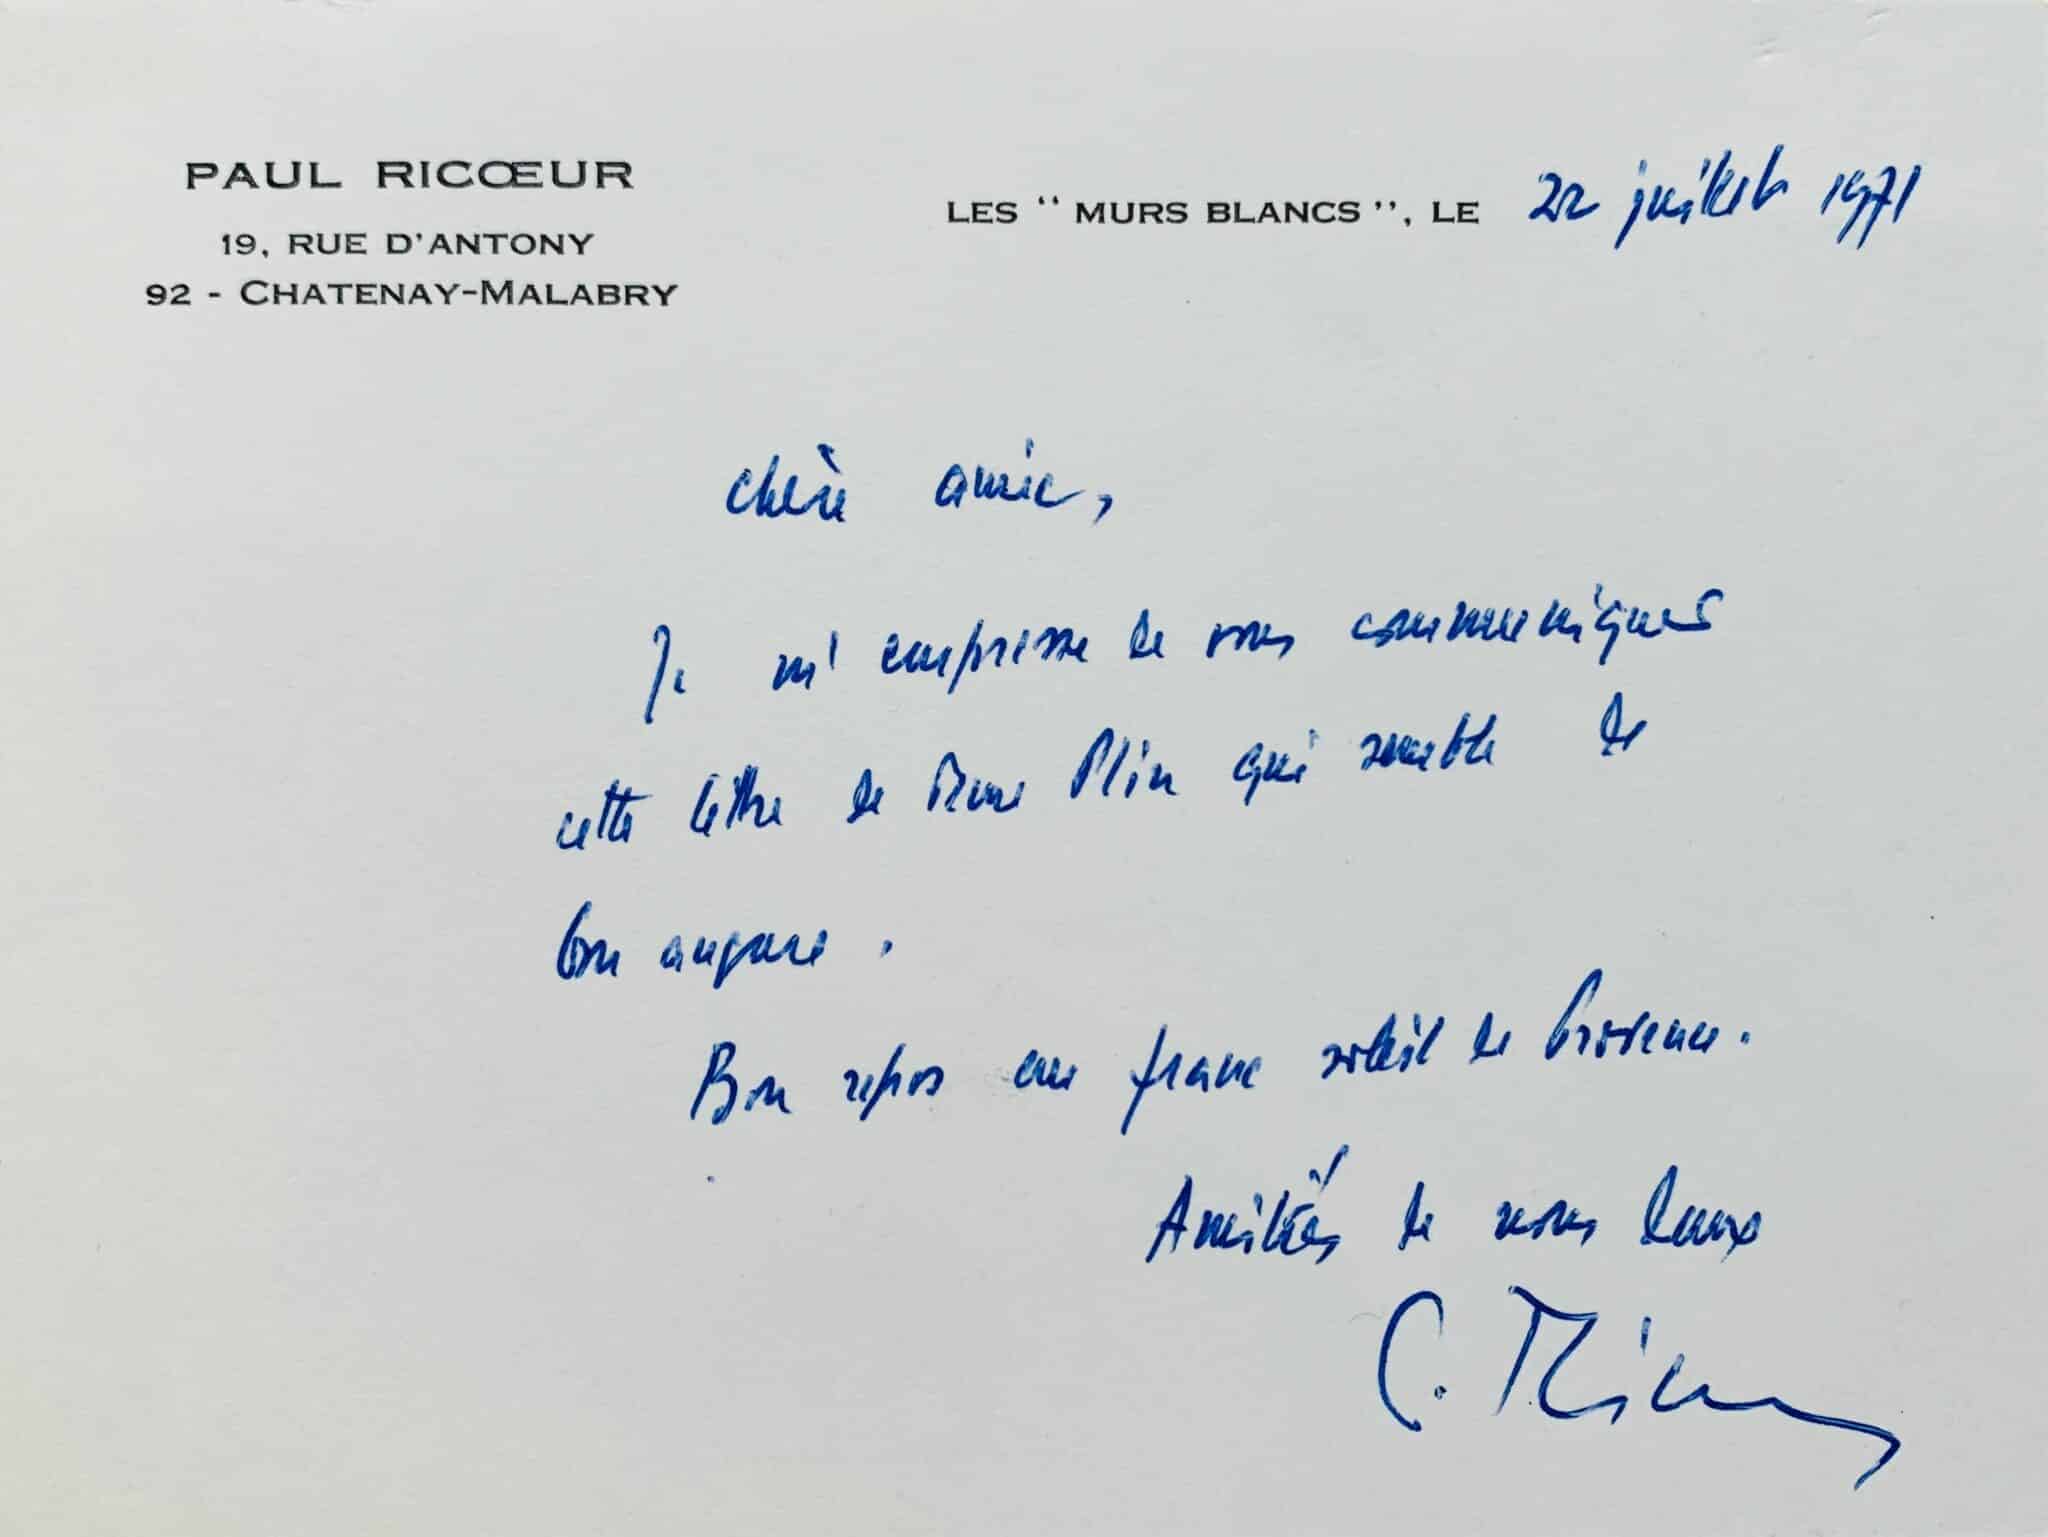 PAUL RICŒUR
19, RUE D'ANTONY
92 - CHATENAY-MALABRY
LES "MURS BLANCS", LE 22 juillet 1971
chère amie,
Je m'empresse de vous communiquer
cette lettre de Mme Plin qui semble de
bon augure.
Bon repos au franc soleil de Provence.
Amitiés de nous deux
P. Ricœur